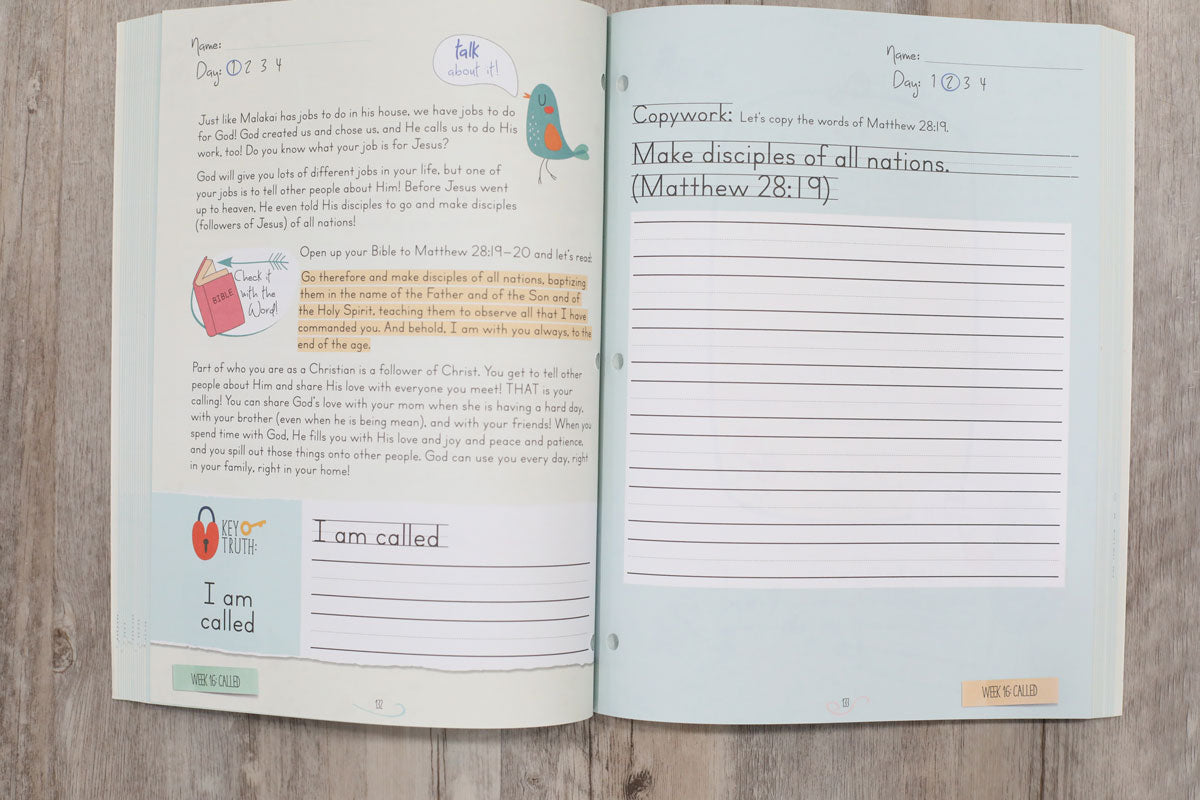 Name:
Day: 1 2 3 4
talk
about it!
Just like Malakai has jobs to do in his house, we have jobs to do
for God! God created us and chose us, and He calls us to do His
work, too! Do you know what your job is for Jesus?
God will give you lots of different jobs in your life, but one of
your jobs is to tell other people about Him! Before Jesus went
up to heaven, He even told His disciples to go and make disciples
(followers of Jesus) of all nations!
BIBLE
Check it
with the
Word!
Open up your Bible to Matthew 28:19–20 and let's read:
Go therefore and make disciples of all nations, baptizing
them in the name of the Father and of the Son and of
the Holy Spirit, teaching them to observe all that I have
commanded you. And behold, I am with you always, to the
end of the age.
Part of who you are as a Christian is a follower of Christ. You get to tell other
people about Him and share His love with everyone you meet! THAT is your
calling! You can share God's love with your mom when she is having a hard day,
with your brother (even when he is being mean), and with your friends! When you
spend time with God, He fills you with His love and joy and peace and patience,
and you spill out those things onto other people. God can use you every day, right
in your family, right in your home!
KEY
TRUTH:
I am
called
I am called
WEEK 16: CALLED
132
Name:
Day: 1 2 3 4
Copywork: Let's copy the words of Matthew 28:19.
Make disciples of all nations.
(Matthew 28:19)
133
WEEK 16: CALLED